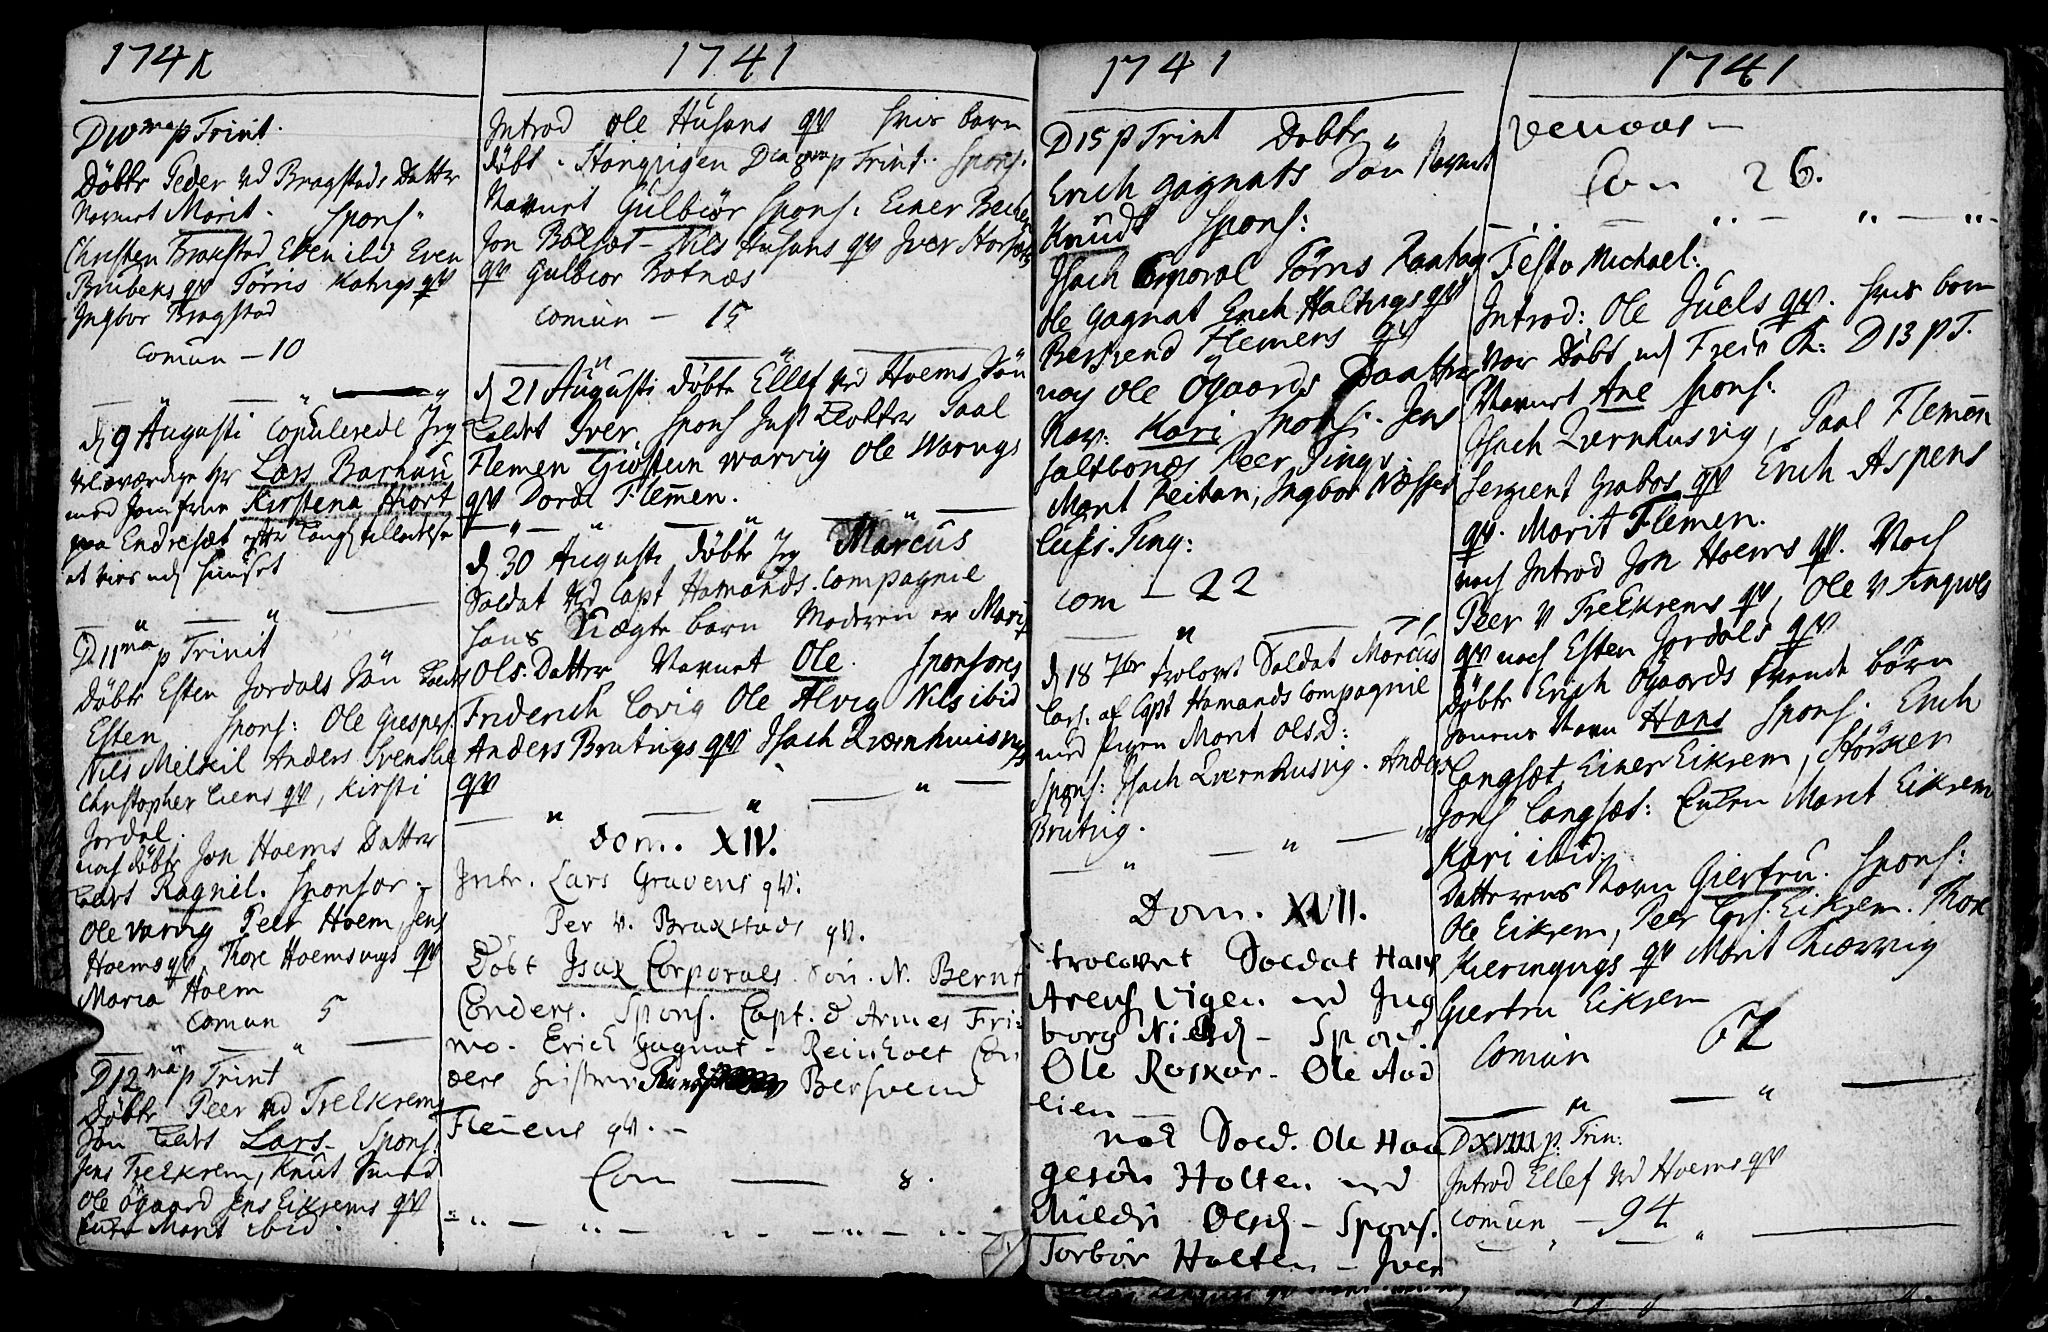 1741
D 10ma p Trinit.
Döbte Peder ved Bragstads Datter
Navnet Marit. Spons.
Christen Brakstad, Even ibid Even
Brubeks qv Törris Katvigs qv
Ingbor Bragstad
Comun – 10
d 9 Augusti Copulerede Jeg
velærværdige Hr Lars Barhau
med Jomfrue Kirstena Hiort
paa Endresæt efter Kongl tilladelse
at vies udj Huuset
D 11ma p Trinit
Döbte Esten Jordals Sön kaldt
Esten Spons: Ole
Nils Melkil Anders Svenslie
Christopher Liens qv, Kirsti
Jordal.
noch döbte Jon Hoems Datter
kaldt Ragnil. Sponsor.
Ole Varvig Peer Hoem, Jens
Hoems qv, Thore Hoemsvigs qv
Maria Hoem
Comun 5
D 12ma p Trinit
Döbte Peer ved Trelkrems
Sön kaldt Lars. Spons.
Jens Trelkrem, Knut Smed
Ole Ögaard Jens Eikrems qv
Marit ibid.
1741
Introd Ole Husans qv hvis barn
döbt Dca 8va p Trinit. Spons.
Navnet Gulbiör Spons: Einer
Jon Bolsæt – Nils Husans qv Iver
qv Gulbior Botnæs
Comun – 15
d 21 Augusti döbte Ellef ved Hoems Sön
kaldet Iver, Spons Paal
Flemen Giostein Warvig Ole Warvigs
qv Dordi Flemen.
d 30 Augusti döbte Jeg Marcus
Soldat ved Capt Hamands Compagnie
hans uægte barn Moderen er Marit
Ols: Datter Navnet Ole. Sponsores
Friderich Lovig Ole Alvig Nils ibid
Anders Brutvigs qv Isach Qvernhuusvigs
qv
Dom. XIV.
Intr. Lars Gravens qv.
Per v. Brakstads qv.
Döbt Isax Corporals Sön. N. Bernt
Conders. Spons. Capt. d'Armes Fri-
mo. Erich Gagnat – Reinholt Con
ders Bersvend
Flemens qv. –
Com — 8.
1741
D 15 p Trinit Döbte
Erich Gagnats Sön Navnet
Knudt Spons:
Isach Corporal Törris
Ole Gagnat Erich Haltvigs qv
Bersvend Flemens qv
noch Ole Ögaards Daatter
Nav: Kari Spons. Jens
Saltbonæs Peer Tings
Marit Reitan, Ingbor Næsset
Com – 22
d 18 7br trolovet Soldat Marcus
Lars. af Capt Hamands Compagnie
med Pigen Marit Ols D:
Spons: Isach Qvernhusvig. Anders
Brutvig.
Dom. XVII.
trolovet Soldat Hans
Arens Vigen med Ing
borg Nielsd – Spons.
Ole Roskar – Ole Aud
lien –
nok Sold. Ole Haa
gesön Holten med
Mildri Olsd – Spons.
Torbör Holten – Iver
1741
Com 26.
Festo Michael:
Introd: Ole Juels qv. hvis barn
var Döbt udj Freis K: D 13 p T.
Navnet Ane Spons:
Isach Qvernhusvig, Paal Flemen
Sergient Grabos qv Erich Aspens
qv. Marit Flemen.
noch Introd Jon Hoems qv. Noch
Peer v Trelkrems qv, Ole v Tingvols
qv noch Esten Jordals qv
Döbte Erich Ögaards tvende börn
Sönens Navn Hans Spons. Erich
Langsæt, Einer Eikrem, Störker
Jons Langsæt: Marit Eikrem
Kari ibid.
Datterens Navn Giertru. Spons:
Ole Eikrem, Peer Lars. Eikrem. Thore
Kieringvigs qv Marit
Giertru Eikrem
Comun
D XVIII p. Trin:
Introd Ellef ved Hoems qv
Comun – 94